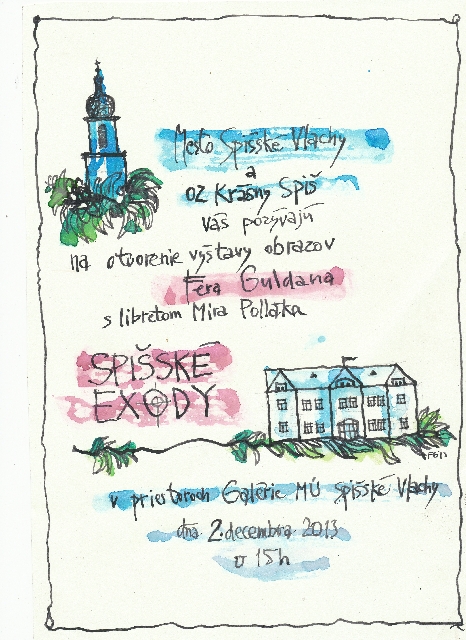 Mesto Spišské Vlachy
a
OZ Krásny Spiš
vás pozývajú
na otvorenie výstavy obrazov
Fera Guldana
s libretom Mira Pollaka
SPIŠSKÉ
EXODY
v priestoroch Galérie MÚ Spišské Vlachy
dňa 2. decembra 2013
o 15h